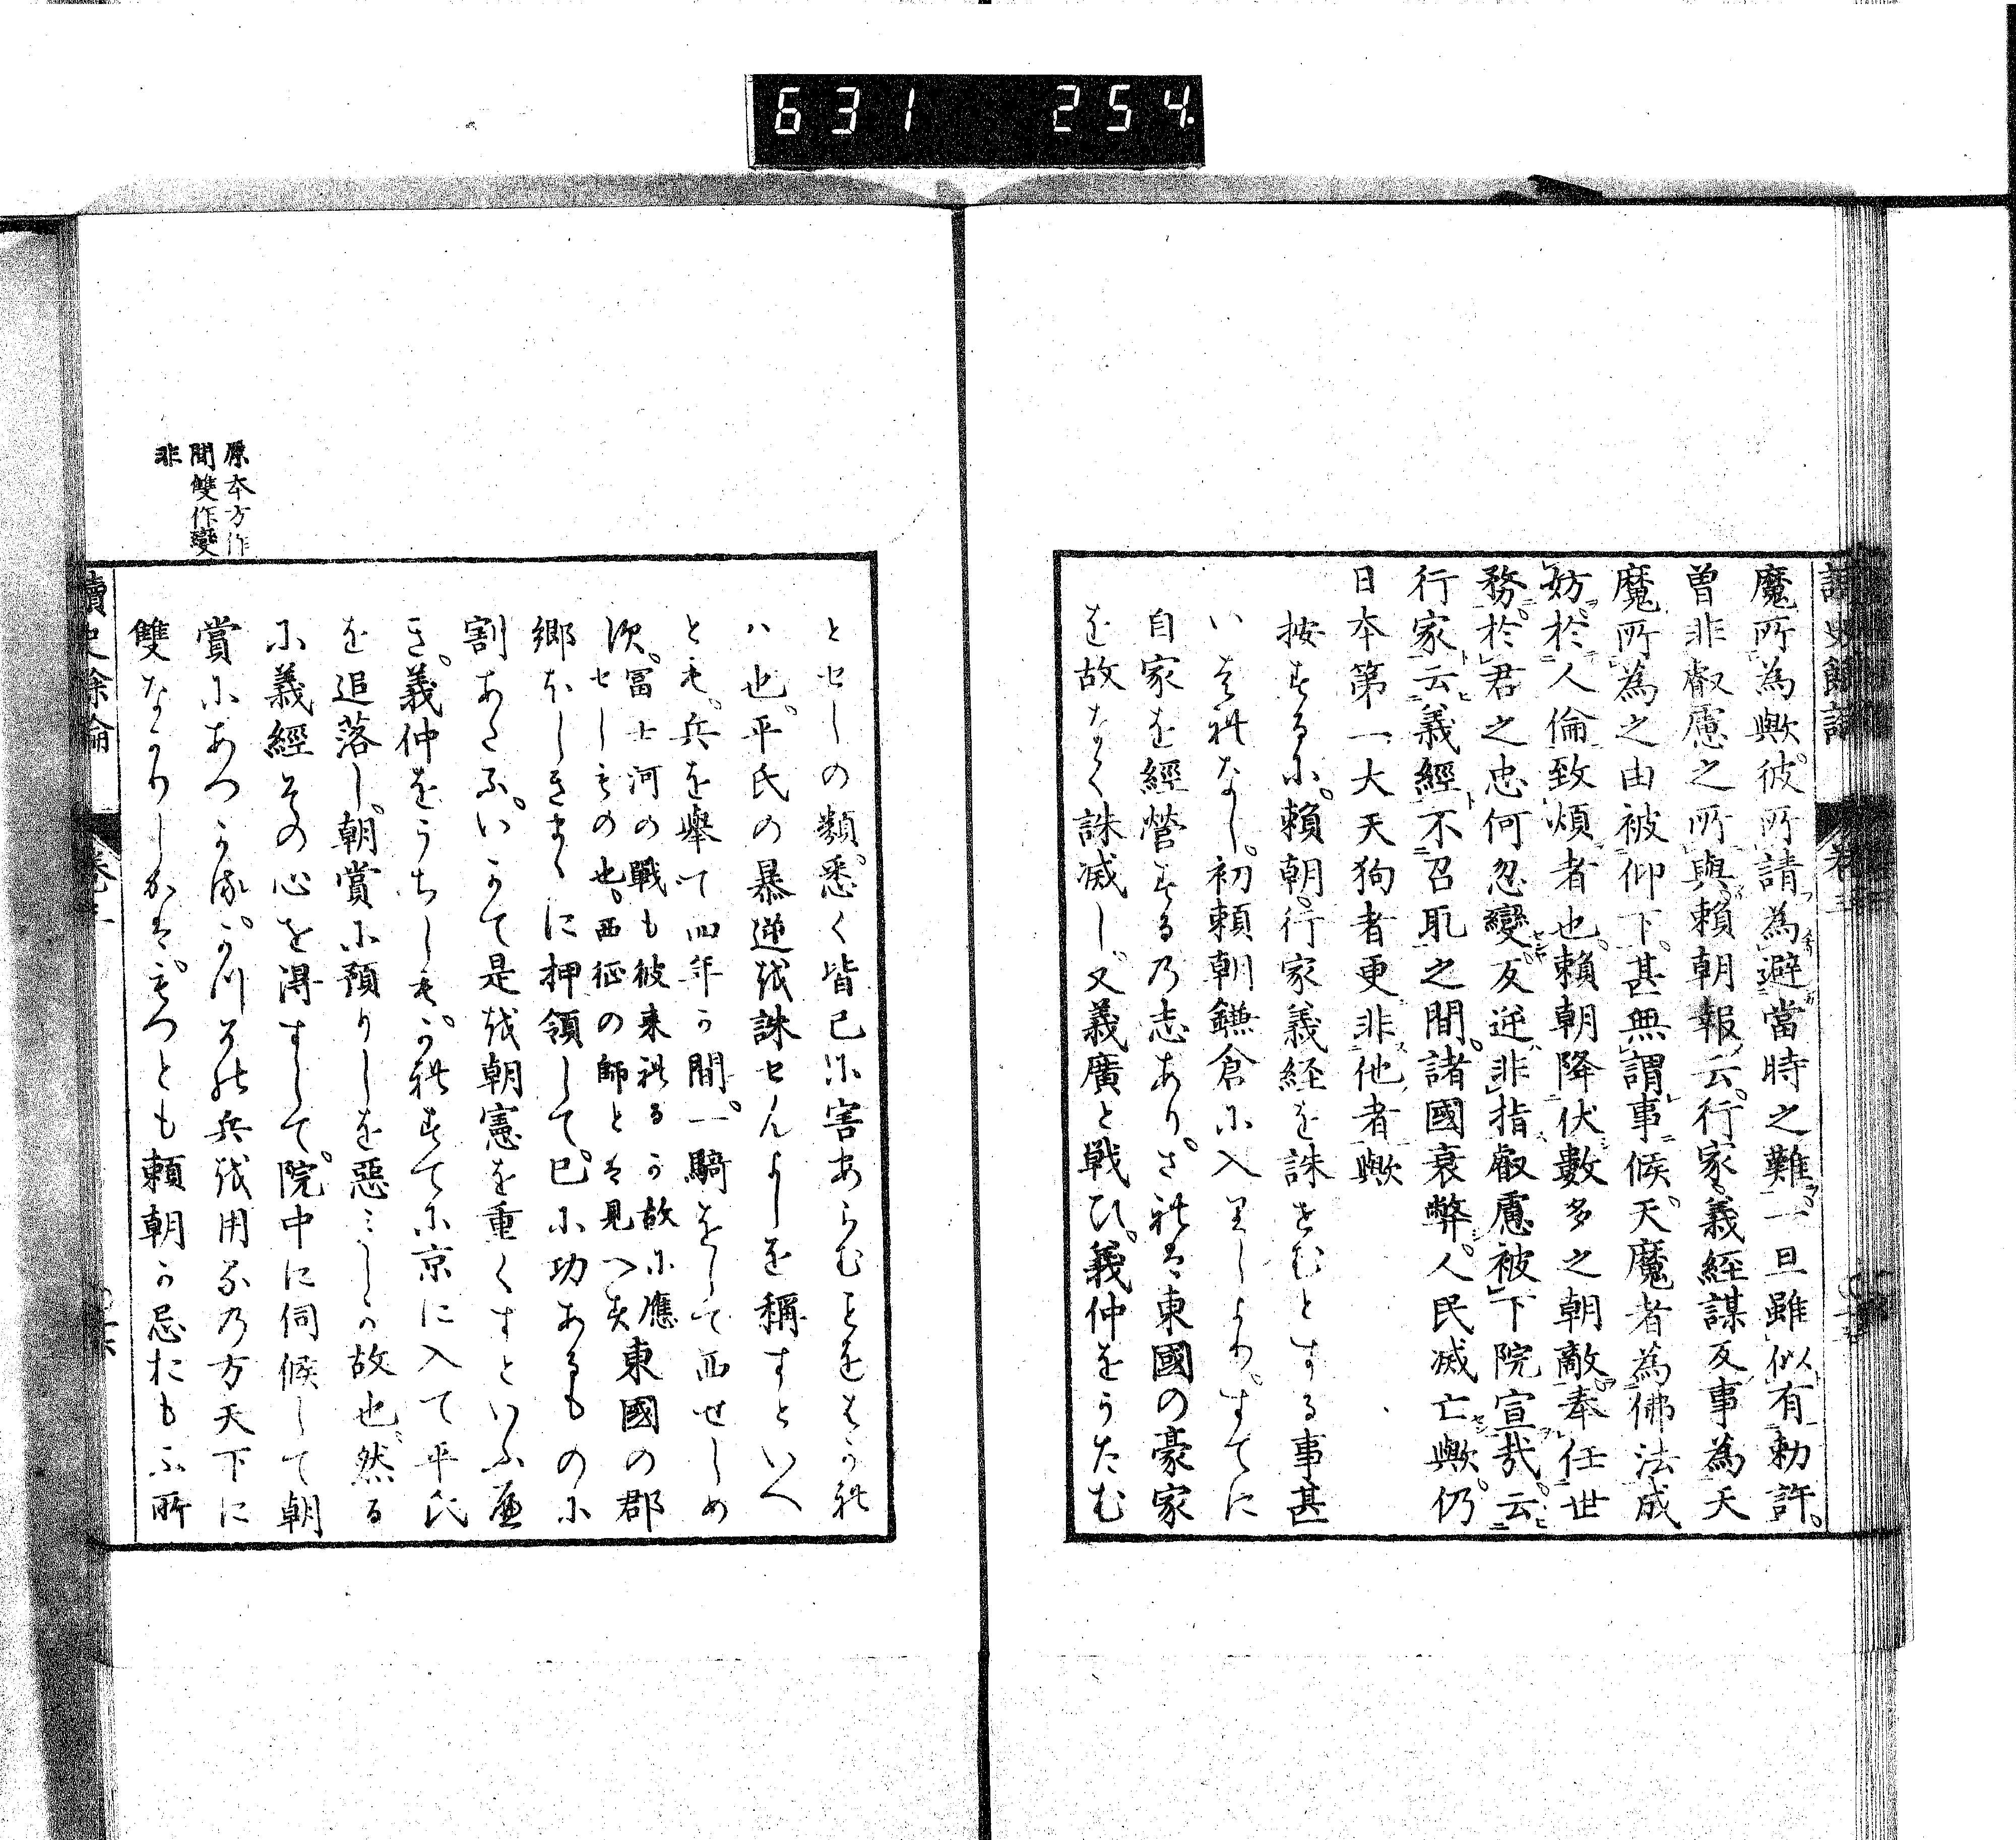 631 254
讀史餘論 卷三
魔所為歟。彼所請為避當時之難。一旦雖似有勅許。
曾非叡慮之所與。頼朝報云。行家義經謀反事為天
魔所為之由被仰下。甚無謂事候。天魔者為佛法成
妨。於人倫致煩者也。頼朝降伏數多之朝敵。奉任世
務。於君之忠何忽變反逆。非指叡慮被下院宣哉。云
行家云義經不召取之間。諸國衰弊。人民滅亡歟。仍
日本第一大天狗者更非他者歟
按するに。頼朝。行家義経を誅せむとする事甚
いはれなし。初頼朝鎌倉に入りしより。すてに
自家を經營するの志あり。されは東國の豪家
を故なく誅滅し。又義廣と戦ひ。義仲をうたむ
とせしの類。悉く皆已に害あらむことをはかれ
ハ也。平氏の暴逆を誅せんよしを稱すといへ
とも。兵を舉て四年か間。一騎をして西せしめ
須。冨士河の戰も彼来れるか故に應
せしもの也。西征の師とは見へす 東國の郡
郷ほしきまゝに押領して。已に功あるものに
割あたふ。いかて是を朝憲を重くすといふへ
き。義仲をうちしも。かれすてに京に入て平氏
を追落し。朝賞に預りしを惡ミしか故也。然る
に義經その心を得すして。院中に伺候して朝
賞にあつかる。かつその兵を用るの方天下に
雙なかりしかは。もつとも頼朝か忌おもふ所
原本方作
間雙作變
非
讀史餘論 卷三